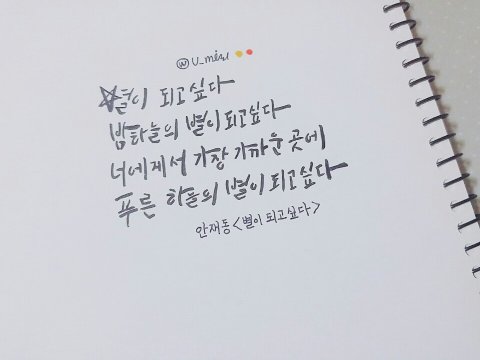 ⓦ U_misu
별이 되고싶다
밤하늘의 별이 되고싶다
너에게서 가장 가까운 곳에
푸른 하늘의 별이 되고싶다
안재동 <별이 되고싶다>